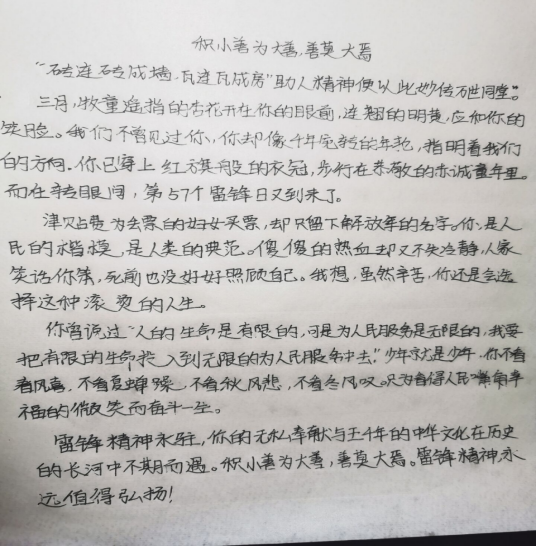 积小善为大善,善莫大焉
“砖连砖成墙,瓦连瓦成房”助人精神便以此妙传万世同堂。
三月,牧童遥指的杏花开在你的眼前,连翘的明黄,应和你的
笑脸。我们不曾见过你,你却像千年宛转的年轮,指明着我们
的方向。你已穿上红旗般的衣冠,步行在恭敬的赤诚童年里。
而在转眼间,第57个雷锋日又到来了。
津贴费为丢票的妇女买票,却只留下解放军的名字。你,是人
民的楷模,是人类的典范。傻傻的热血却又不失冷静,人家
笑话你笨,死前也没好好照顾自己。我想,虽然辛苦,你还是会选
择这种滚烫的人生。
你曾说过“人的生命是有限的,可是为人民服务是无限的,我要
把有限的生命投入到无限的为人民服务中去!”少年就是少年,你不看
春风喜,不看夏蝉躁,不看秋风悲,不看冬风叹。只为看得人民嘴角幸
福的微笑而奋斗一生。
雷锋精神永驻,你的无私奉献与五千年的中华文化在历史
的长河中不期而遇。积小善为大善,善莫大焉。雷锋精神永
远值得弘扬!